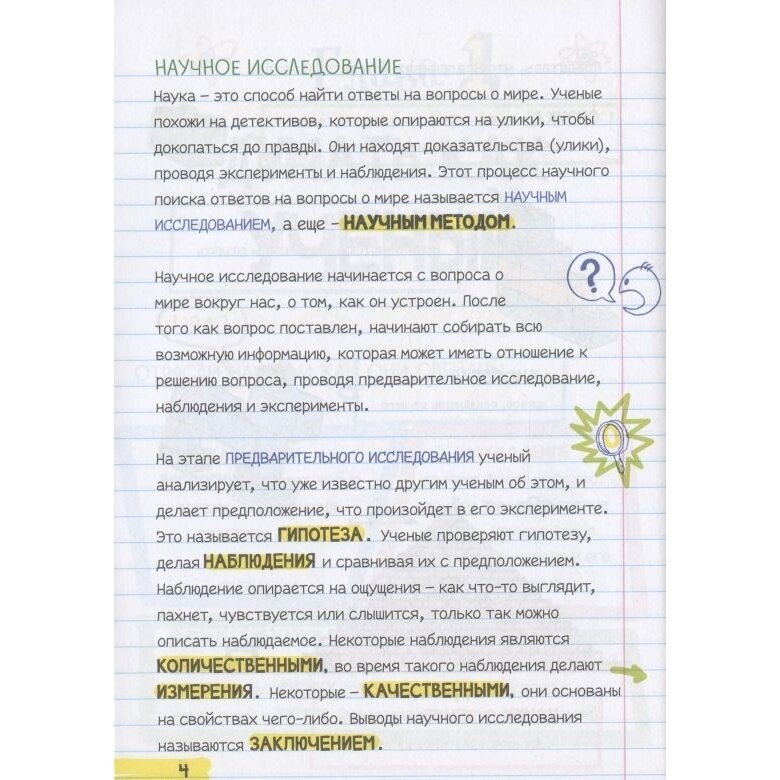 НАУЧНОЕ ИССЛЕДОВАНИЕ
Наука – это способ найти ответы на вопросы о мире. Ученые
похожи на детективов, которые опираются на улики, чтобы
докопаться до правды. Они находят доказательства (улики),
проводя эксперименты и наблюдения. Этот процесс научного
поиска ответов на вопросы о мире называется НАУЧНЫМ
ИССЛЕДОВАНИЕМ, а еще – НАУЧНЫМ МЕТОДОМ.
Научное исследование начинается с вопроса о
мире вокруг нас, о том, как он устроен. После
?
того как вопрос поставлен, начинают собирать всю
возможную информацию, которая может иметь отношение к
решению вопроса, проводя предварительное исследование,
наблюдения и эксперименты.
На этапе ПРЕДВАРИТЕЛЬНОГО ИССЛЕДОВАНИЯ ученый
анализирует, что уже известно другим ученым об этом, и
делает предположение, что произойдет в его эксперименте.
Это называется ГИПОТЕЗА. Ученые проверяют гипотезу,
делая НАБЛЮДЕНИЯ и сравнивая их с предположением.
Наблюдение опирается на ощущения – как что-то выглядит,
пахнет, чувствуется или слышится, только так можно
описать наблюдаемое. Некоторые наблюдения являются
КОЛИЧЕСТВЕННЫМИ, во время такого наблюдения делают
ИЗМЕРЕНИЯ. Некоторые – КАЧЕСТВЕННЫМИ, они основаны
на свойствах чего-либо. Выводы научного исследования
называются ЗАКЛЮЧЕНИЕМ.
4